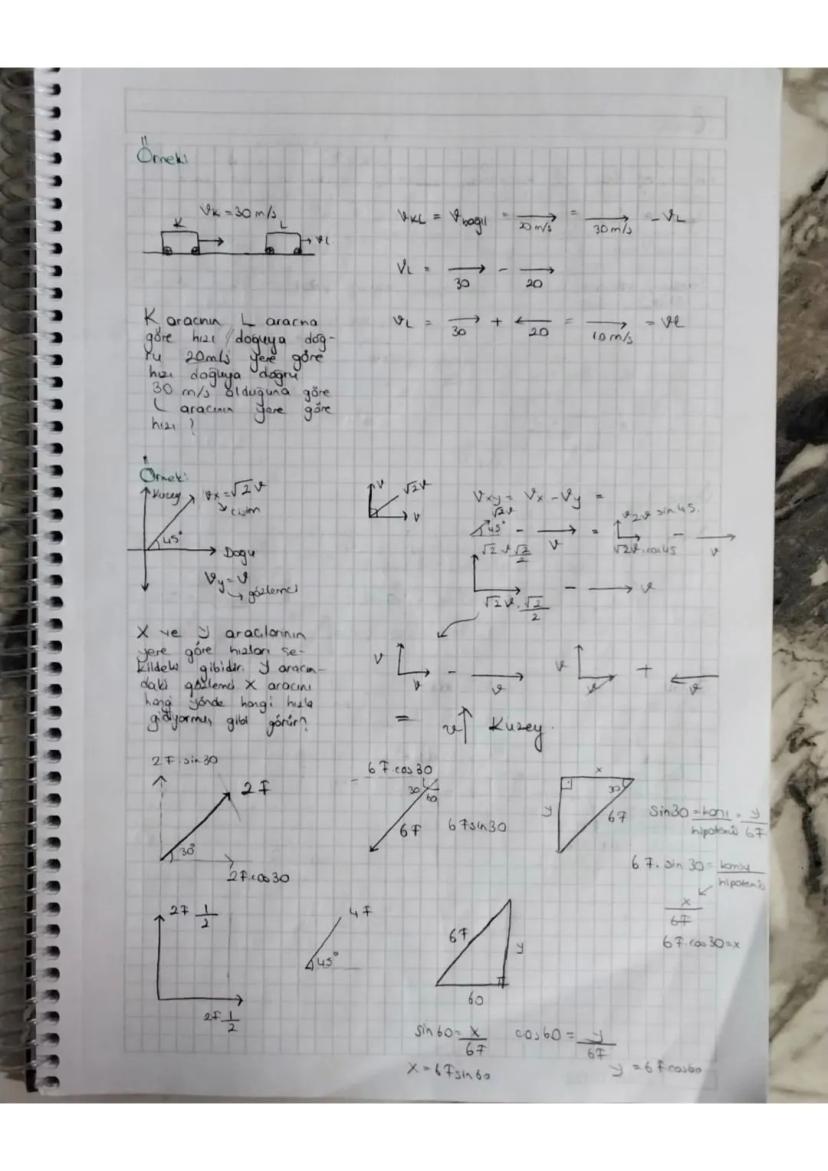 Örnek:
K
ϑK = 30 m/s
L
ϑL
ϑKL = ϑbağıl = 20 m/s = 30 m/s - ϑL
ϑL = 30 - 20
ϑL = 30 + 20 = 10 m/s = ϑL
K aracının L aracına
göre hızı doğuya doğ-
ru 20m/s yere göre
hızı doğuya doğru
30 m/s olduğuna göre
L aracının yere göre
hızı ?
Örnek:
Kuzey
ϑx = √2ϑ
cisim
45°
Doğu
ϑy = ϑ
gözlemci
√2ϑ
ϑ
ϑxy = ϑx - ϑy =
√2ϑ
45° - ϑ = √2ϑ sin 45.
√2ϑ . cos 45 - ϑ
√2 ϑ √2/2
√2 ϑ . √2/2 - ϑ
X ve y araçlarının
yere göre hızları şe-
kildeki gibidir. y aracın-
daki gözlemci X aracını
hangi yönde hangi hızla
gidiyormuş gibi görür?
ϑ ϑ - ϑ
ϑ + ϑ
= ϑ Kuzey
2F . sin 30
2F
30°
2F.cos30
6F cos30
30
60
6F
6Fsin30
x
30
y
6F
Sin30 = karşı/hipotenüs = y/6F
6F. sin 30 = komşu/hipotenüs
x/6F
6F.cos30=x
2F 1/2
2F 1/2
4F
45°
6F
y
60
sin60 = x/6F
cos60 = y/6F
x = 6Fsin60
y = 6Fcos60